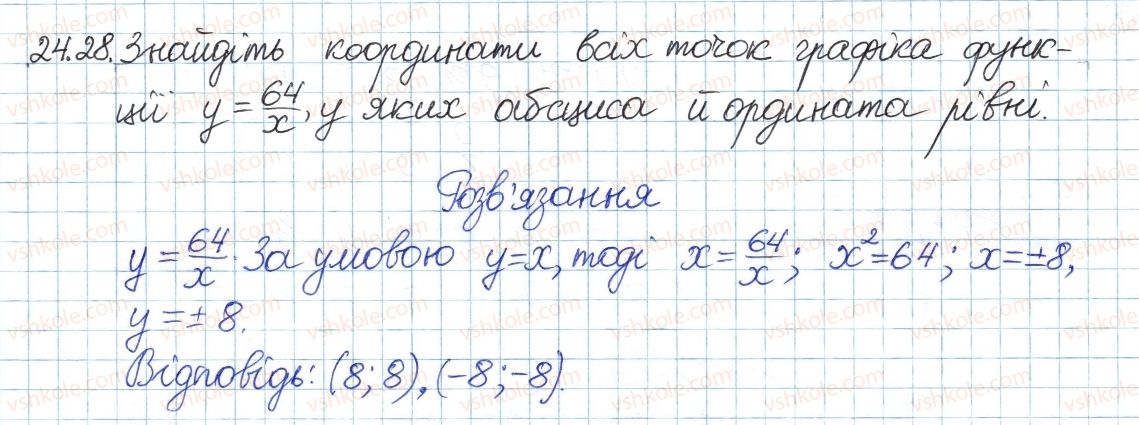 24.28. Знайдіть координати всіх точок графіка функ-
ції y = 64/x, у яких абсциса й ордината рівні.
Розв'язання
y = 64/x. За умовою y = x, тоді x = 64/x; x² = 64; x = ±8,
y = ± 8.
Відповідь: (8; 8), (-8; -8).